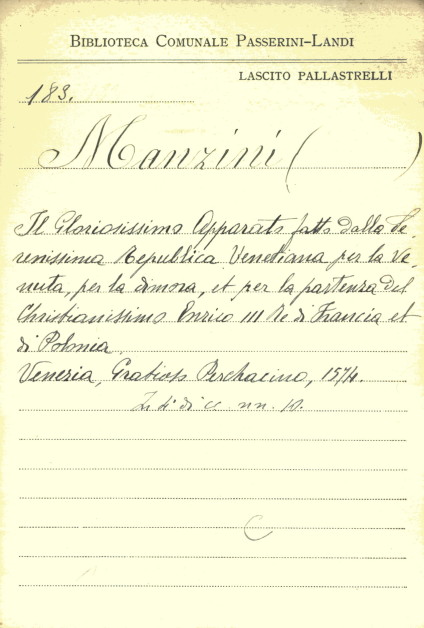 BIBLIOTECA COMUNALE PASSERINI-LANDI
LASCITO PALLASTRELLI
183.
Manzini ( )
Il Gloriosissimo Apparato fatto dalla Se-
renissima Republica Venetiana per la Ve-
nuta, per la dimora, et per la partenza del
Christianissimo Enrico III Re di Francia et
di Polonia.
Venezia, Gratioso Perchacino, 1574.
In 4° di cc nn. 10.
C